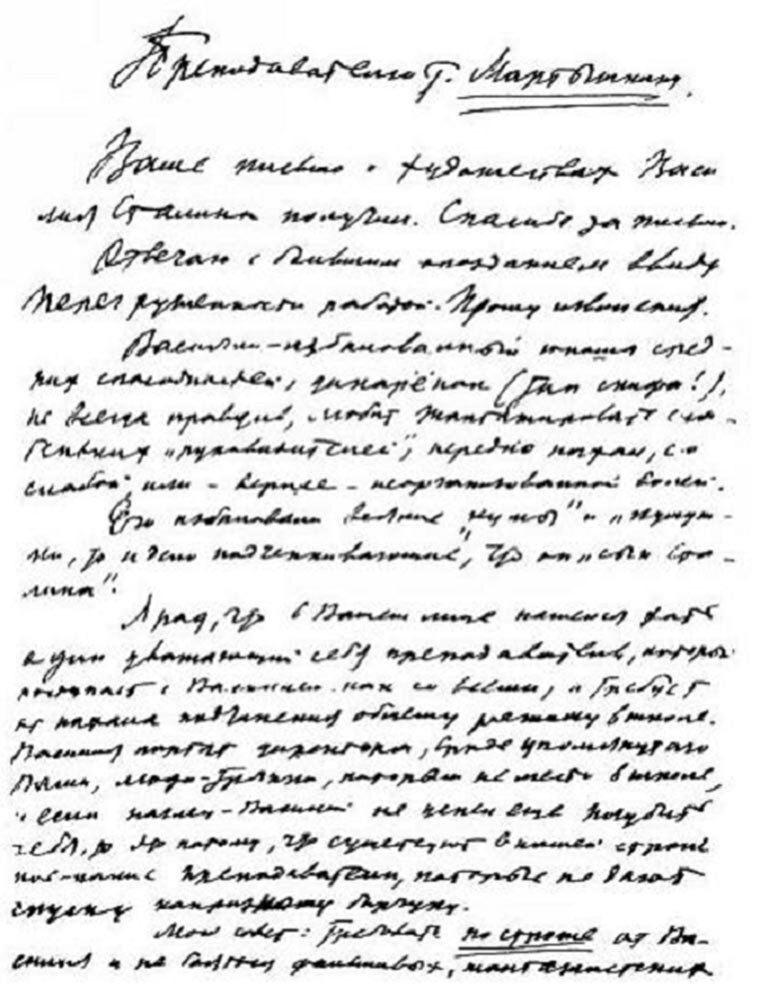 Преподавателю т. Мартышину.
Ваше письмо о художествах Васи
лия Сталина получил. Спасибо за письмо.
Отвечаю с большим опозданием ввиду
перегруженности работой. Прошу извинения.
Василий – избалованный юноша сред-
них способностей, дикарёнок (тип скифа!),
не всегда правдив, любит шантажировать сла-
беньких „руководителей", нередко нахал, со
слабой или – вернее – неорганизованной волей.
Его избаловали всякие „кумы" и „кумуш-
ки, то и дело подчеркивающие", что он „сын Ста-
лина".
Я рад, что в Вашем лице нашелся хоть
один уважающий себя преподаватель, который
поступает с Василием как со всеми, и требует
от нахала подчинения общему режиму в школе.
Василия портят директора, вроде упомянутого
Вами, люди-тряпки, которым не место в школе,
и если наглец-Василий не успел еще погубить
себя, то это потому, что существуют в нашей стране
кое-какие преподаватели, которые не дают
спуску капризному барчуку.
Мой совет: требовать построже от Ва-
силия и не бояться фальшивых, шантажистских